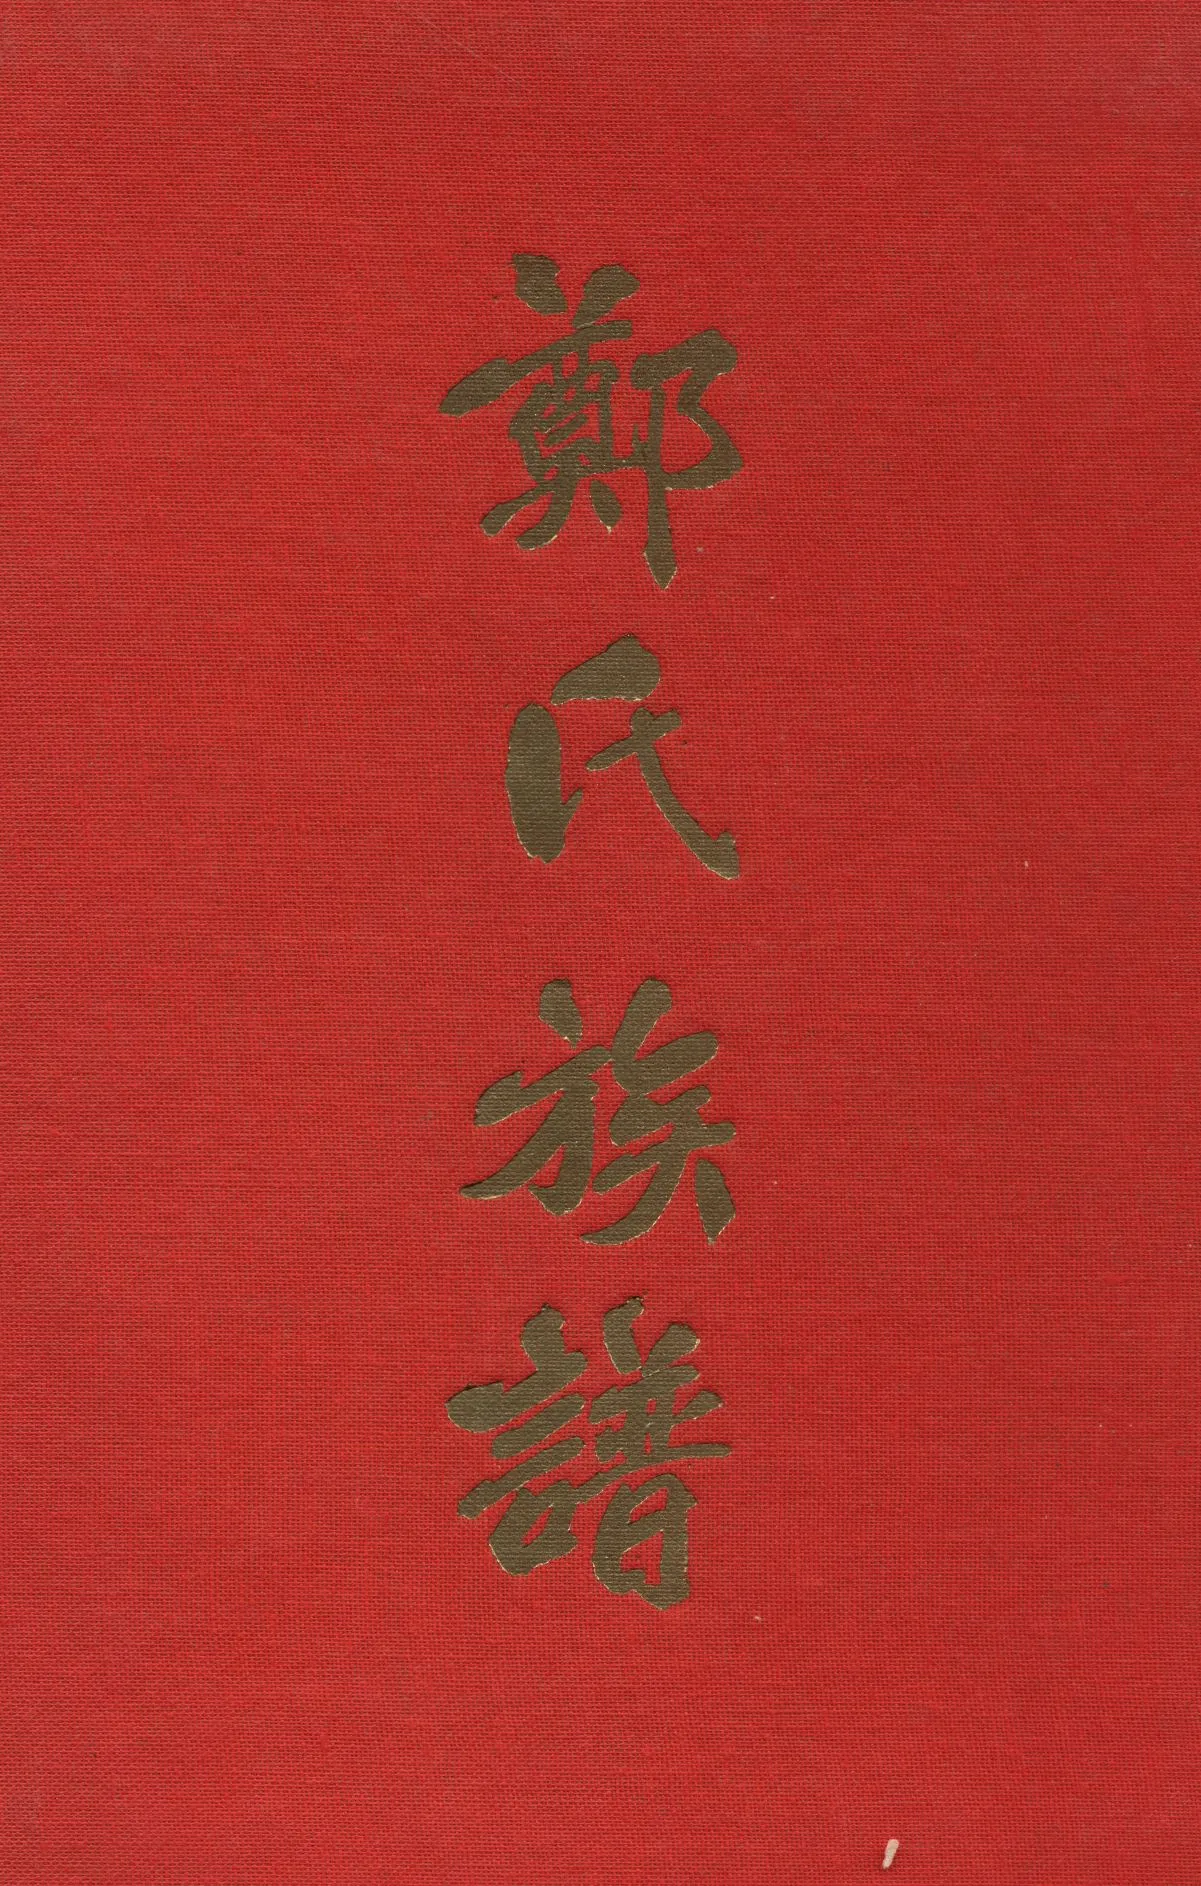 鄭氏族譜